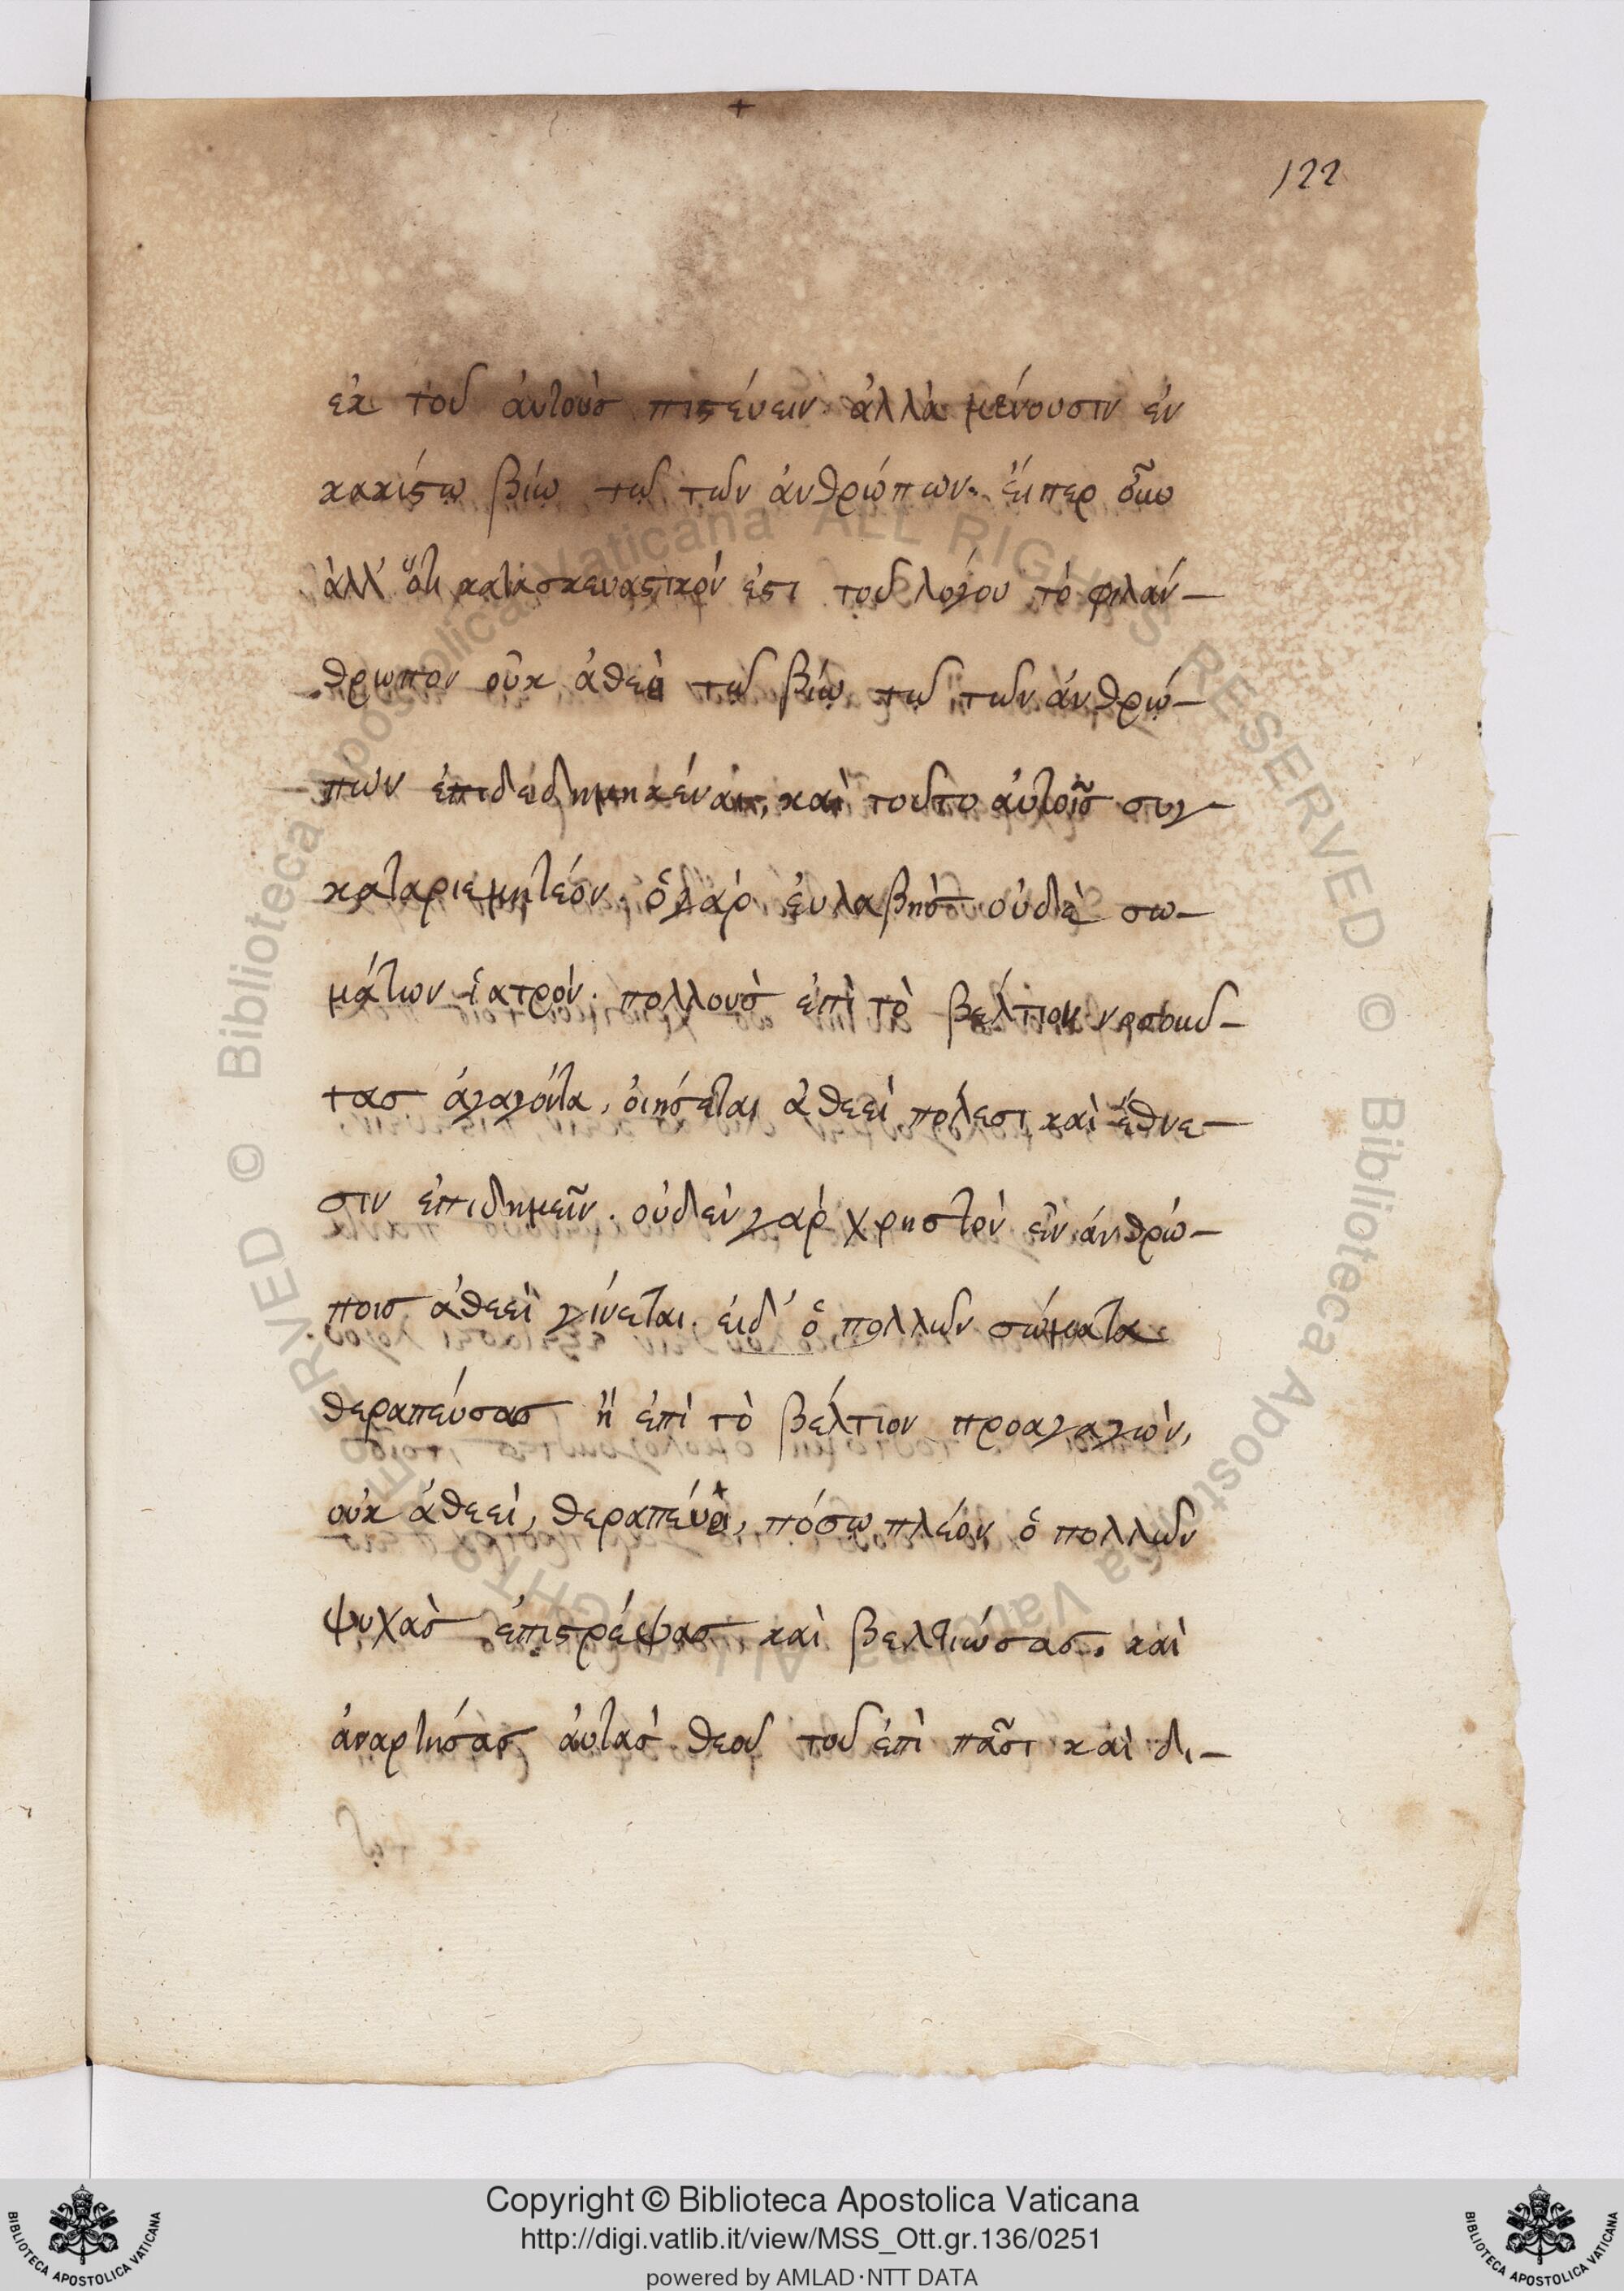 122
ἐκ τοῦ ἀυτοὺσ πιστέυειν· ἀλλὰ μένουσιν ἐν
κακίστῳ βίῳ τῷ τῶν ἀνθρώπων. ἔιπερ
ἀλλ' ὅτι κατασκευαστικόν ἐστι τοῦ λόγου τὸ φιλάν-
θρωπον οὐκ ἀθεεὶ τῷ βίῳ τῷ τῶν ἀνθρώ-
πων ἐπιδεδημηκέναι, καὶ τοῦτο ἀυτοῖσ συγ-
καταριθμητέον. ὁ γὰρ ἐυλαβὴσ οὐδὲ σω-
μάτων ἰατρόν. πολλοὺσ ἐπὶ τὸ βέλτιον νοσοῦν-
τασ ἀγαγόντα, ὀιήσεται ἀθεεὶ πόλεσι καὶ ἔθνε-
σιν ἐπιδημεῖν. οὐδὲν γὰρ χρηστὸν ἐν ἀνθρώ-
ποισ ἀθεεὶ γίνεται. ἐιδ' ὁ πολλῶν σώματα
θεραπέυσασ ἢ ἐπὶ τὸ βέλτιον προαγαγὼν,
οὐκ ἀθεεὶ, θεραπέυει, πόσῳ πλέον ὁ πολλῶν
ψυχὰσ ἐπιστρέψασ καὶ βελτιώσασ. καὶ
ἀναρτήσασ ἀυτὰσ θεοῦ τοῦ ἐπὶ πᾶσι καὶ δι-
Copyright © Biblioteca Apostolica Vaticana
http://digi.vatlib.it/view/MSS_Ott.gr.136/0251
powered by AMLAD·NTT DATA
BIBLIOTECA APOSTOLICA VATICANA
BIBLIOTECA APOSTOLICA VATICANA
© Biblioteca Apostolica Vaticana ALL RIGHTS RESERVED © Biblioteca Apostolica Vaticana ALL RIGHTS RESERVED